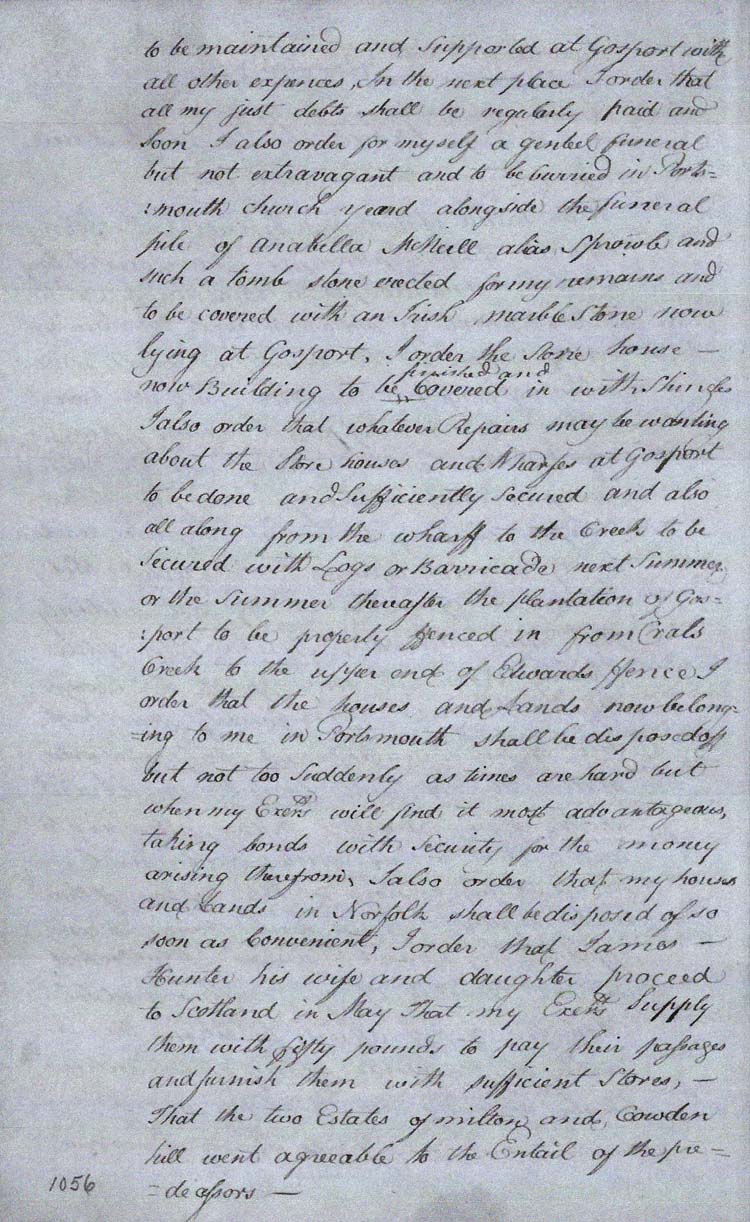 to be maintained and Supported at Gosport with
all other expences, In the next place I order that
all my just debts shall be regularly paid and
soon I also order for myself a genteel funeral
but not extravagant and to be burried in Ports=
:mouth church yeard alongside the funeral
pile of Anabella McNeill alias Sprowle and
such a tomb stone erected for my remains and
to be covered with an Irish marble Stone now
lying at Gosport, I order the Store house —
finished and
now Building to be Covered in with Shingles
I also order that whatever Repairs may be wanting
about the Store houses and Wharfes at Gosport
to be done and Sufficiently Secured and also
all along from the wharff to the Creek to be
Secured with Logs or Barricade next Summer
or the Summer thereafter the plantation of Gos=
:port to be properly ffenced in from Crabs
Creek to the upper end of Edwards ffence I
order that the houses and Lands now belong=
=ing to me in Portsmouth shall be disposed off
but not too Suddenly as times are hard but
when my Exers will find it most advantageous,
taking bonds with Security for the money
arising therefrom, I also order that my houses
and Lands in Norfolk shall be disposed of so
soon as Convenient, I order that James —
Hunter his wife and daughter proceed
to Scotland in May That my Exers Supply
them with fifty pounds to pay their passages
and furnish them with sufficient Stores, —
That the two Estates of milton and Cowden
hill went agreeable to the Entail of the pre=
=decessors —
1056